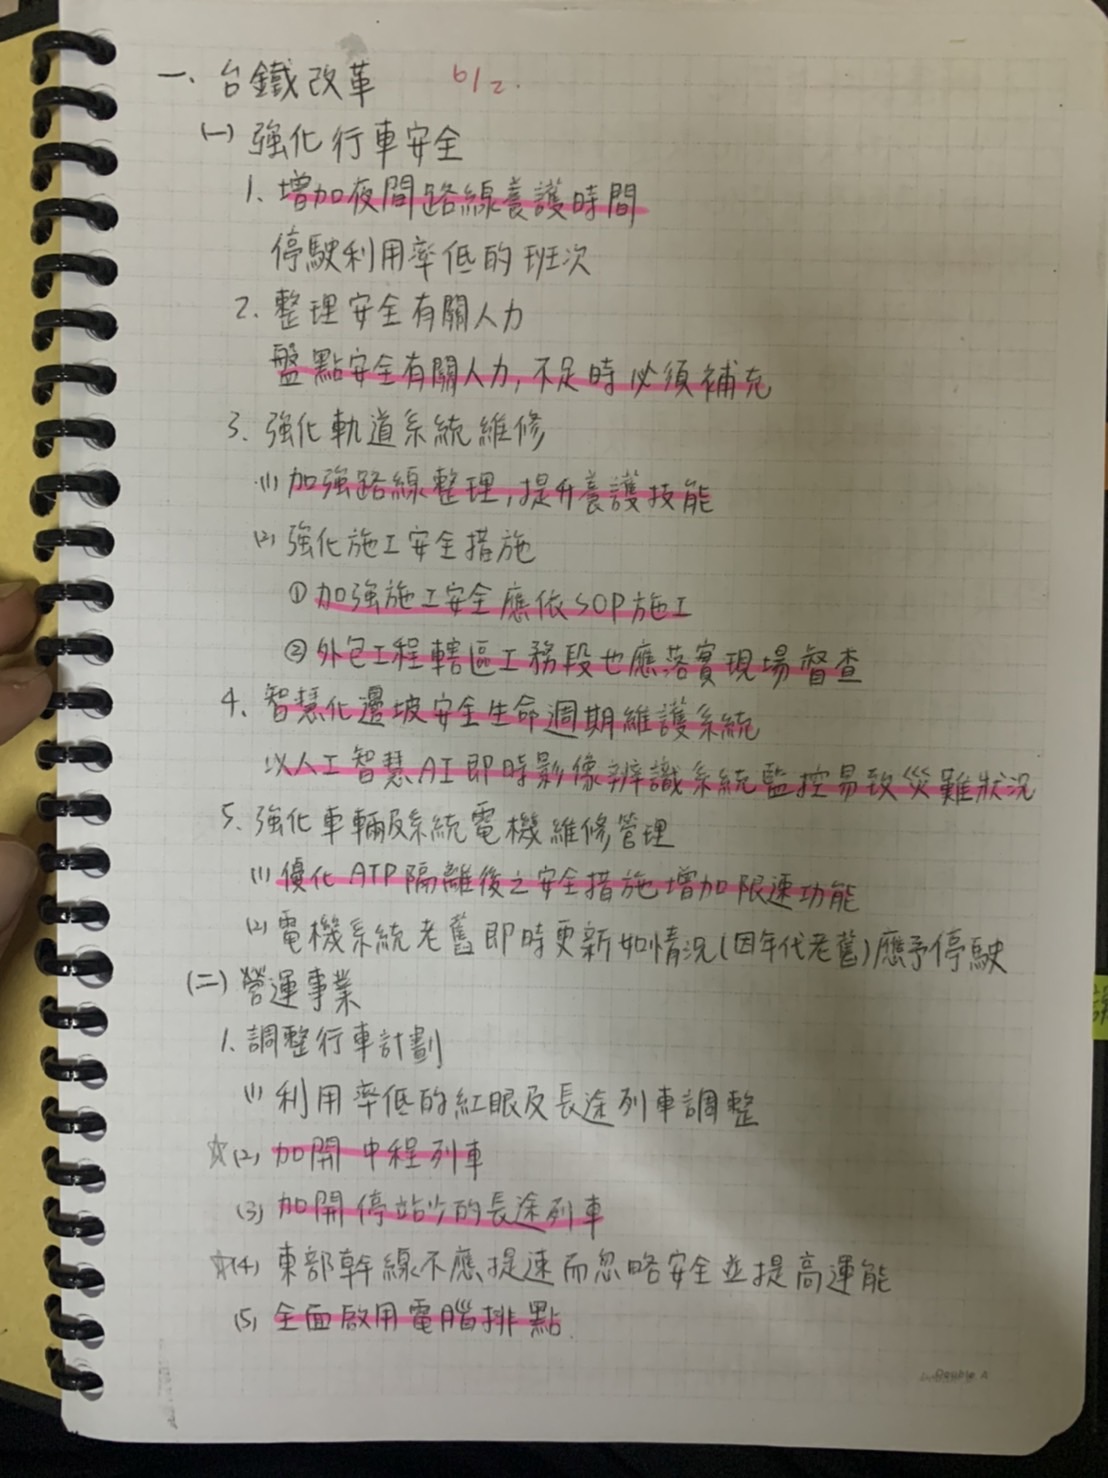 一、台鐵改革 6/2.
(一)強化行車安全
1、增加夜間路線養護時間
停駛利用率低的班次
2、整理安全有關人力
盤點安全有關人力,不足時必須補充
3、強化軌道系統維修
(1)加強路線整理,提升養護技能
(2)強化施工安全措施
①加強施工安全應依SOP施工
②外包工程轄區工務段也應落實現場督查
4、智慧化邊坡安全生命週期維護系統
以人工智慧AI即時影像辨識系統監控易致災難狀況
5、強化車輛及系統電機維修管理
(1)優化ATP隔離後之安全措施增加限速功能
(2)電機系統老舊即時更新如情況(因年代老舊)應予停駛
(二)營運事業
1、調整行車計劃
(1)利用率低的紅眼及長途列車調整
☆(2)加開中程列車
(3)加開停站少的長途列車
☆(4)東部幹線不應提速而忽略安全並提高運能
(5)全面啟用電腦排點